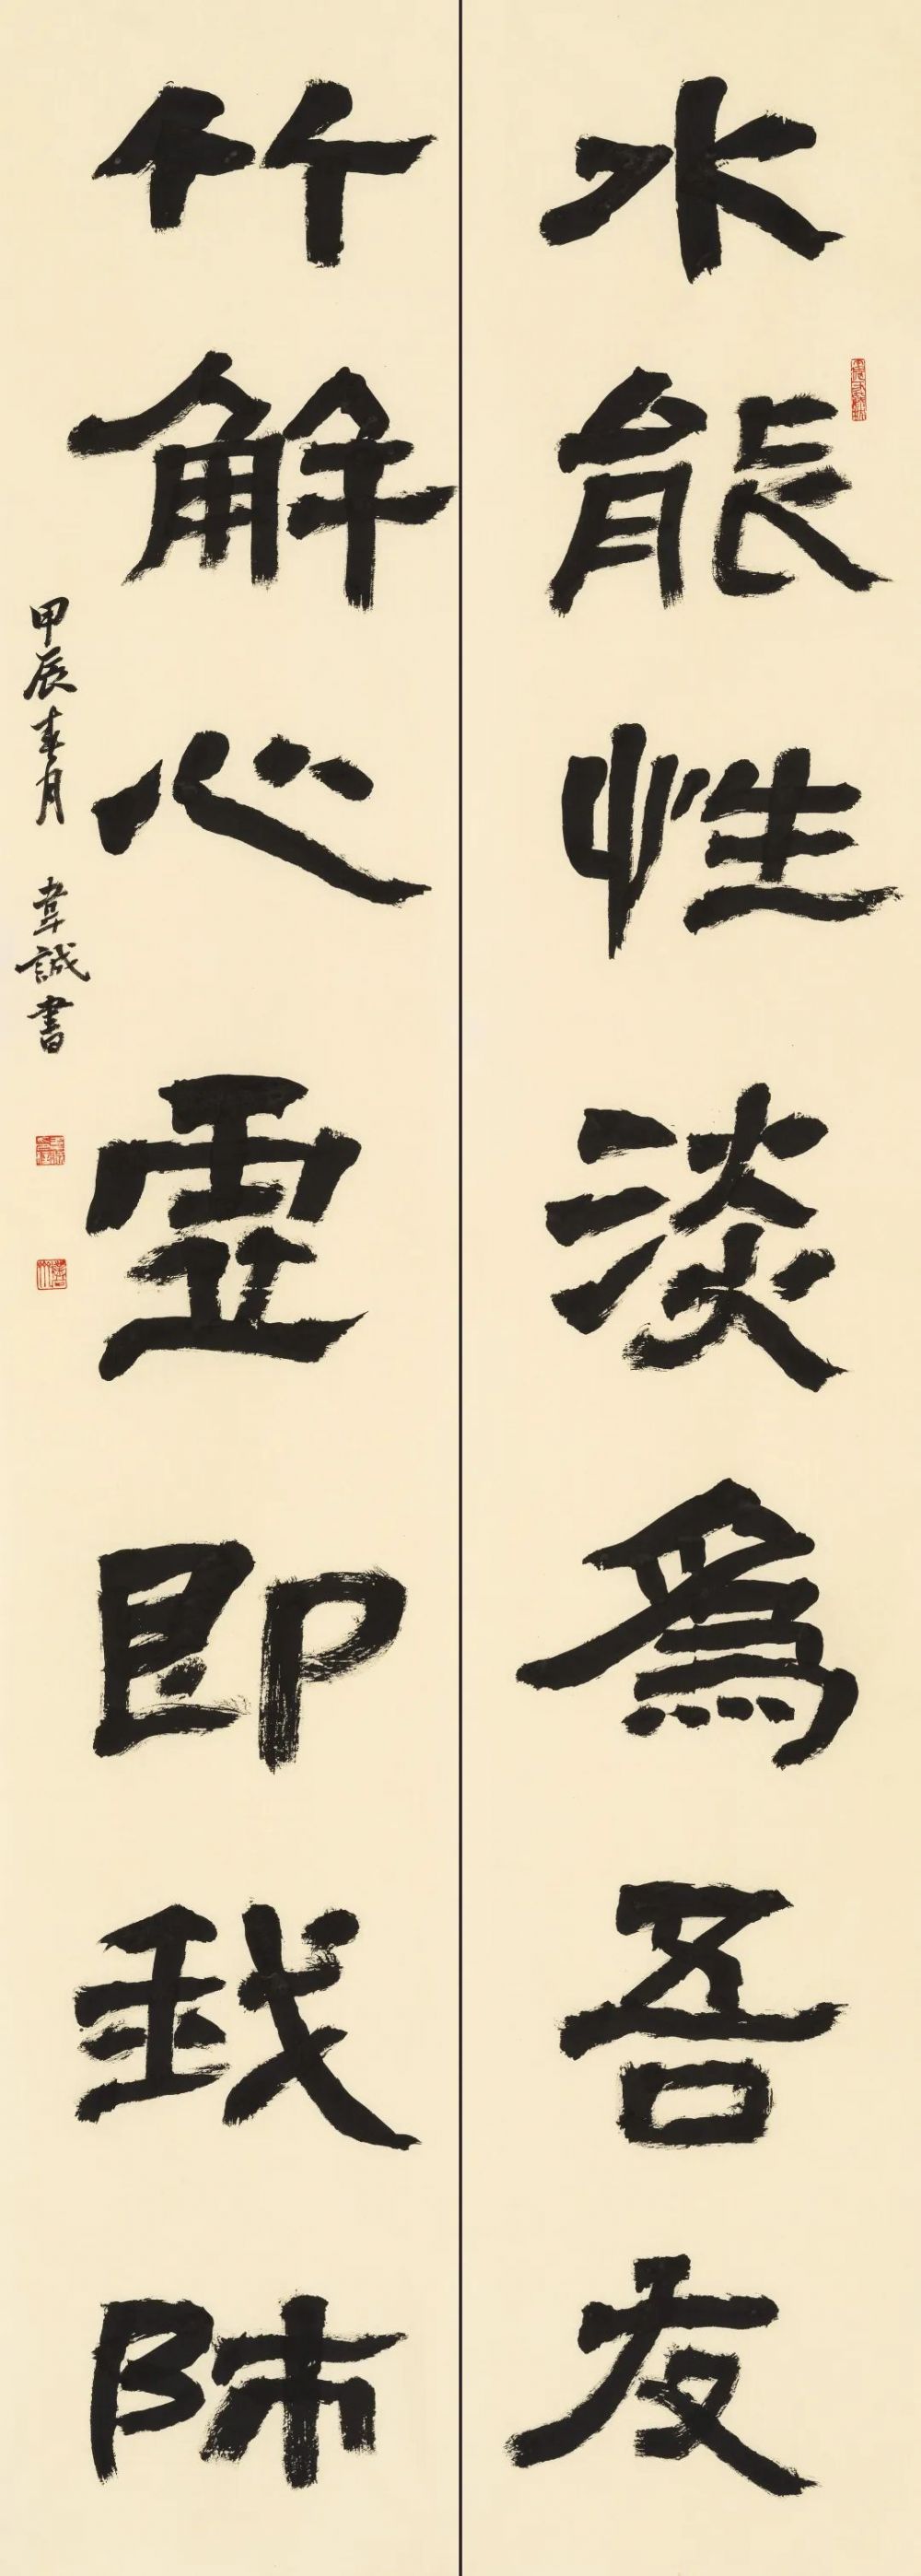 水能性淡為吾友
竹解心虛即我師
甲辰春月 韋誠書